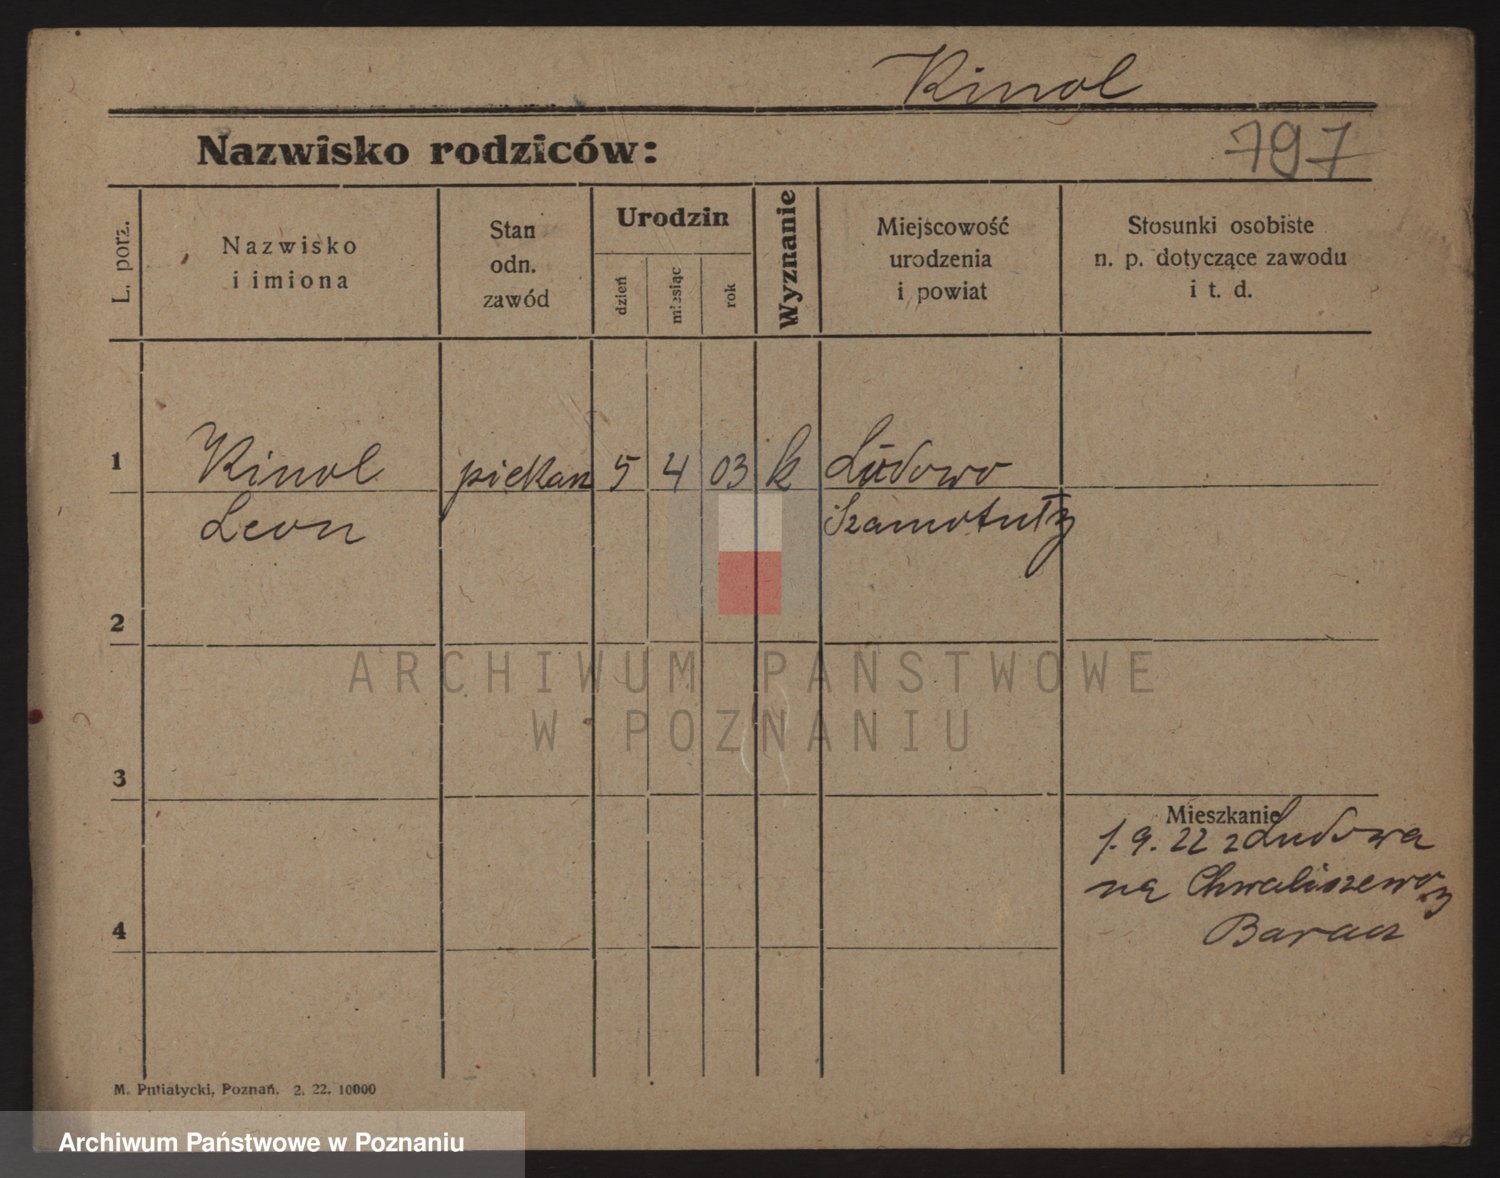 Kinol
Nazwisko rodziców:
797
L. porz.
Nazwisko
i imiona
Stan
odn.
zawód
Urodzin
dzień
miesiąc
rok
Wyznanie
Miejscowość
urodzenia
i powiat
Stosunki osobiste
n. p. dotyczące zawodu
i t. d.
1
Kinol
Leon
piekarz
5
4
03
k
Ludowo
Szamotuły
2
3
Mieszkanie
1. 9. 22 z Ludowa
na Chwaliszewo
4
M. Putiatycki, Poznań. 2. 22. 10000
ARCHIWUM PAŃSTWOWE
W POZNANIU
Archiwum Państwowe w Poznaniu